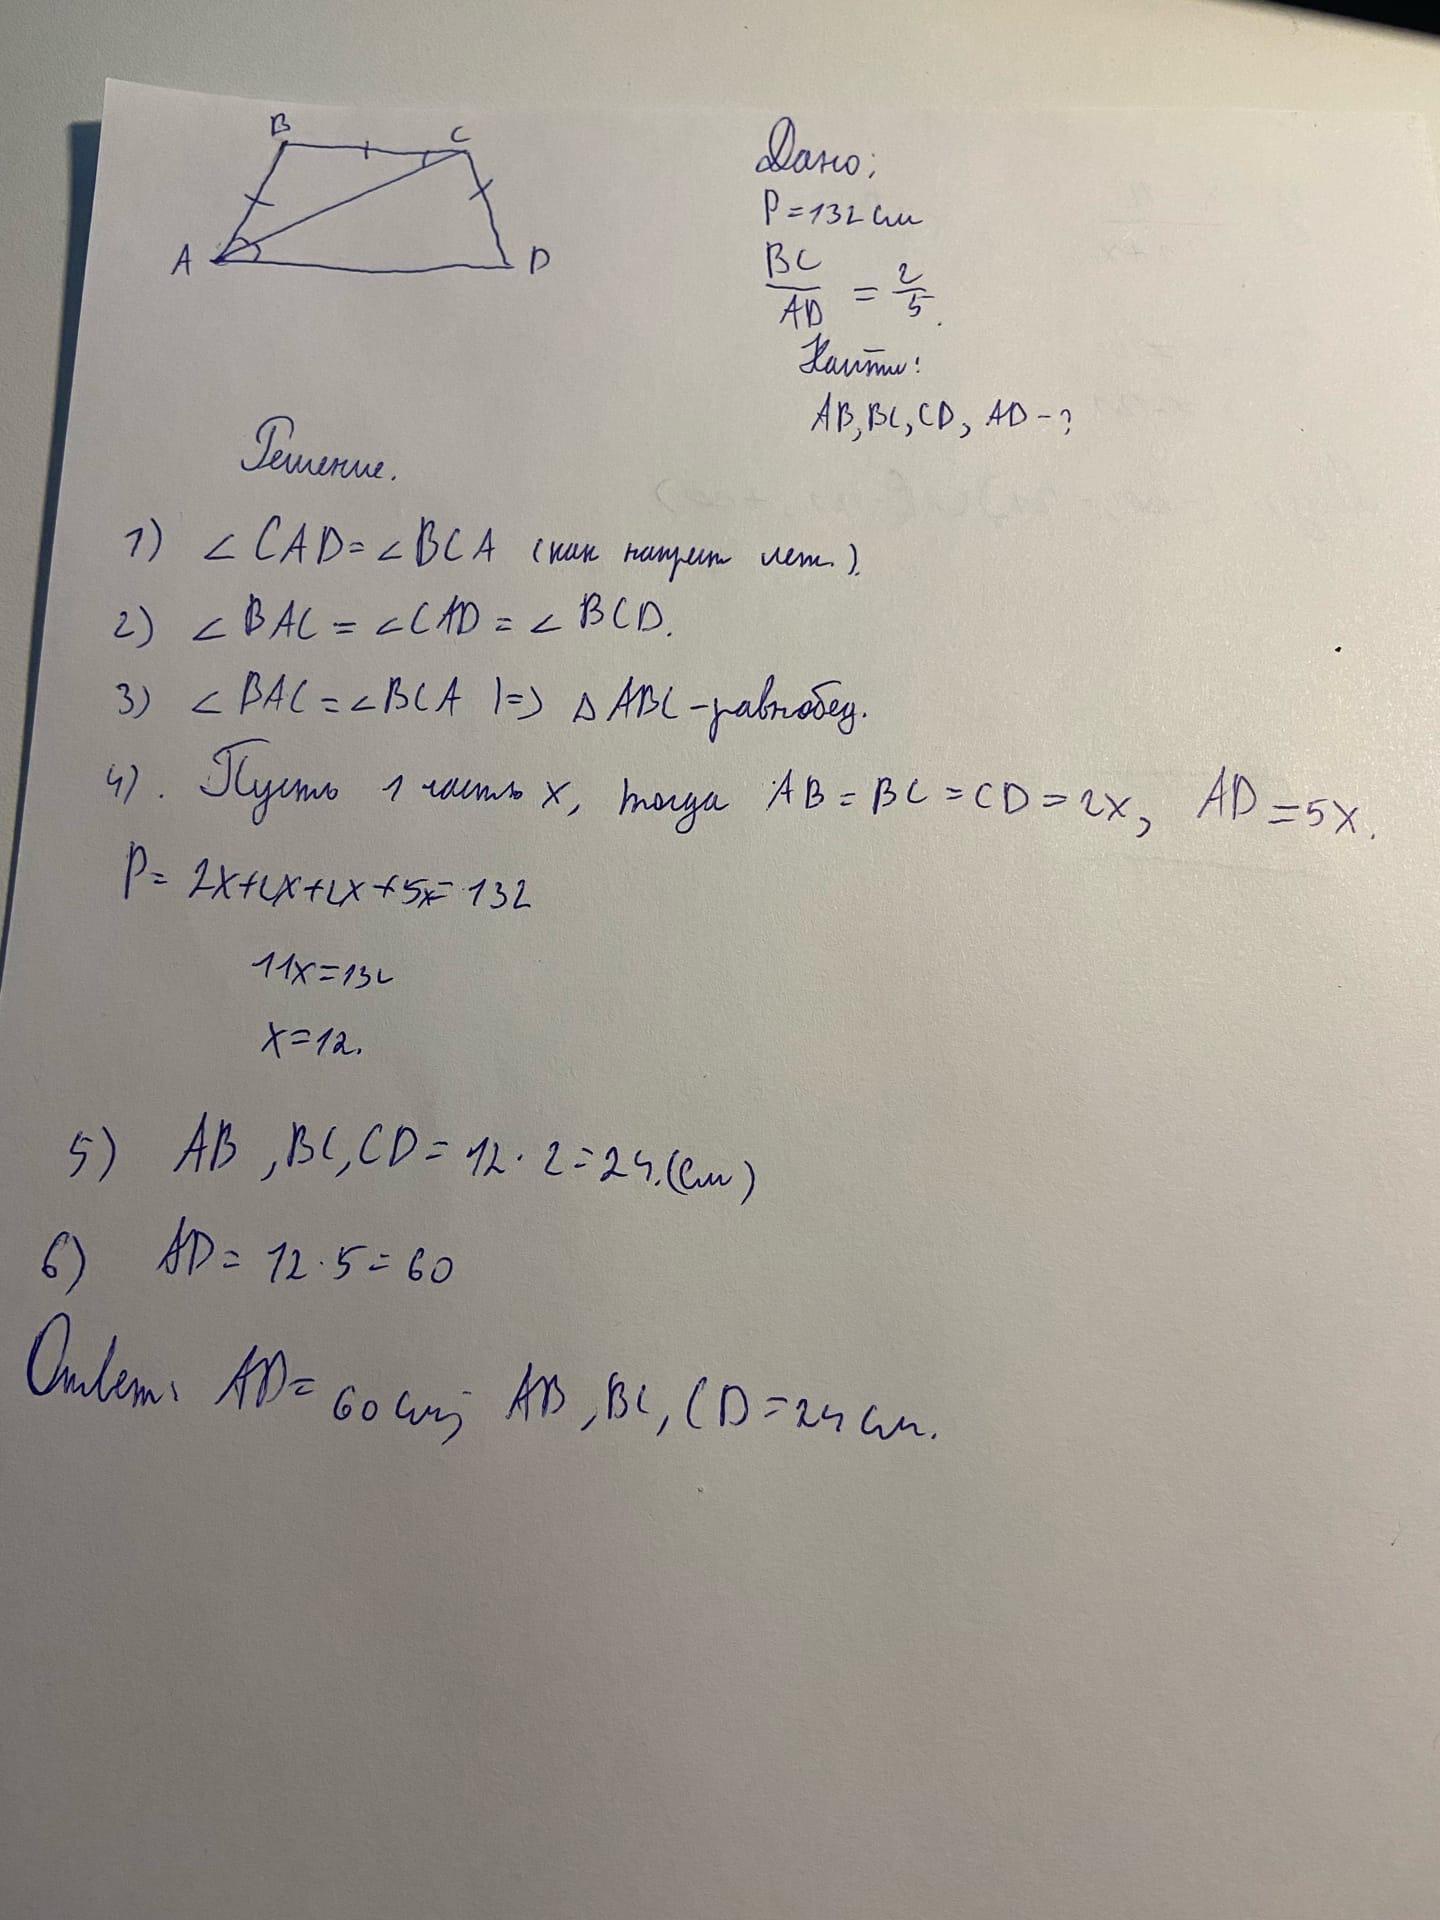 B C
A D
Дано:
P=132 см
BC/AD = 2/5.
Найти:
AB, BC, CD, AD - ?
Решение.
1) ∠CAD=∠BCA (как накрест леж.).
2) ∠BAC = ∠CAD = ∠BCD.
3) ∠BAC=∠BCA |=> △ABC-равнобед.
4). Пусть 1 часть x, тогда AB = BC = CD = 2x, AD = 5x.
P= 2x+2x+2x+5x= 132
11x=132
x=12.
5) AB, BC, CD = 12 · 2 = 24.(см)
6) AD= 12·5=60
Ответ: AD= 60 см; AB, BC, CD=24 см.